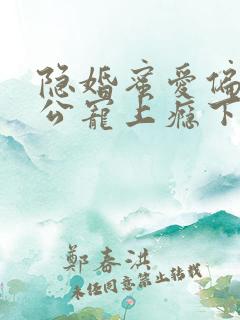 隐婚蜜爱偏
公宠上瘾下
郑春洪
未经同意禁止转载